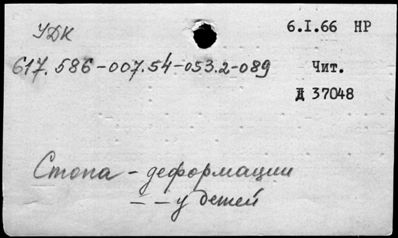 УДК
6.I.66 НР
617.586-007.54-053.2-089
Чит.
Д 37048
Стопа - деформации
- - у детей